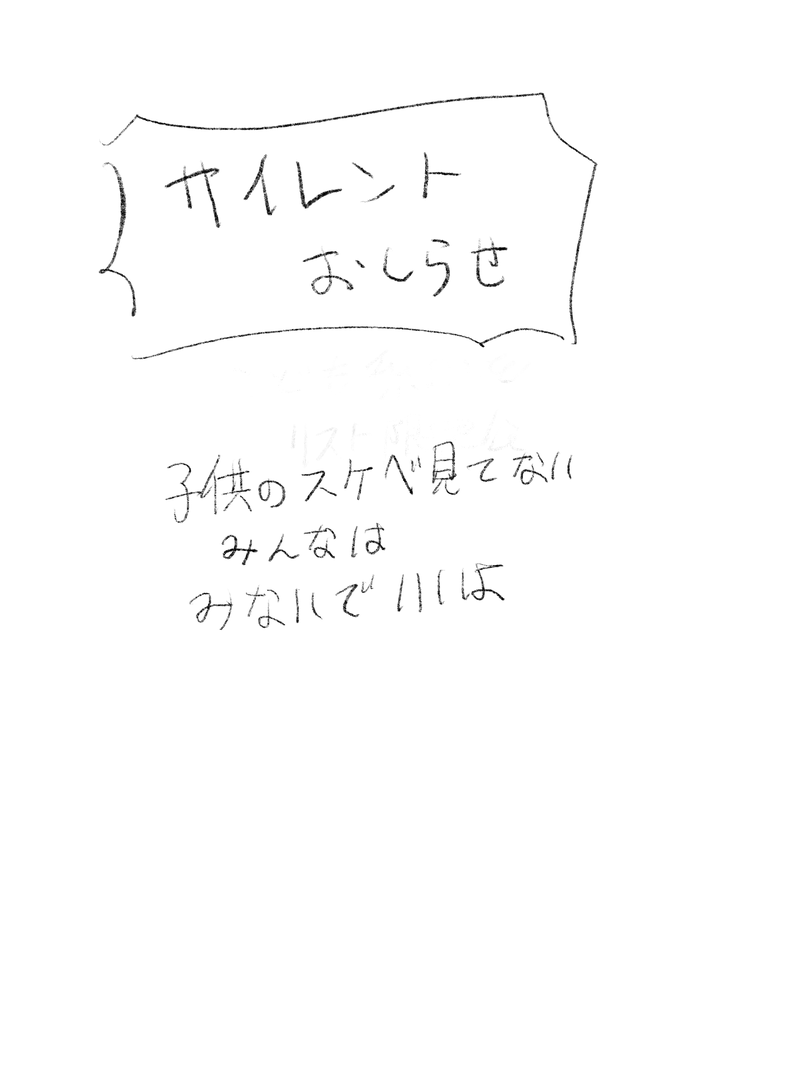 サイレント
おしらせ
子供のスケベ見てない
みんなは
みないでいいよ